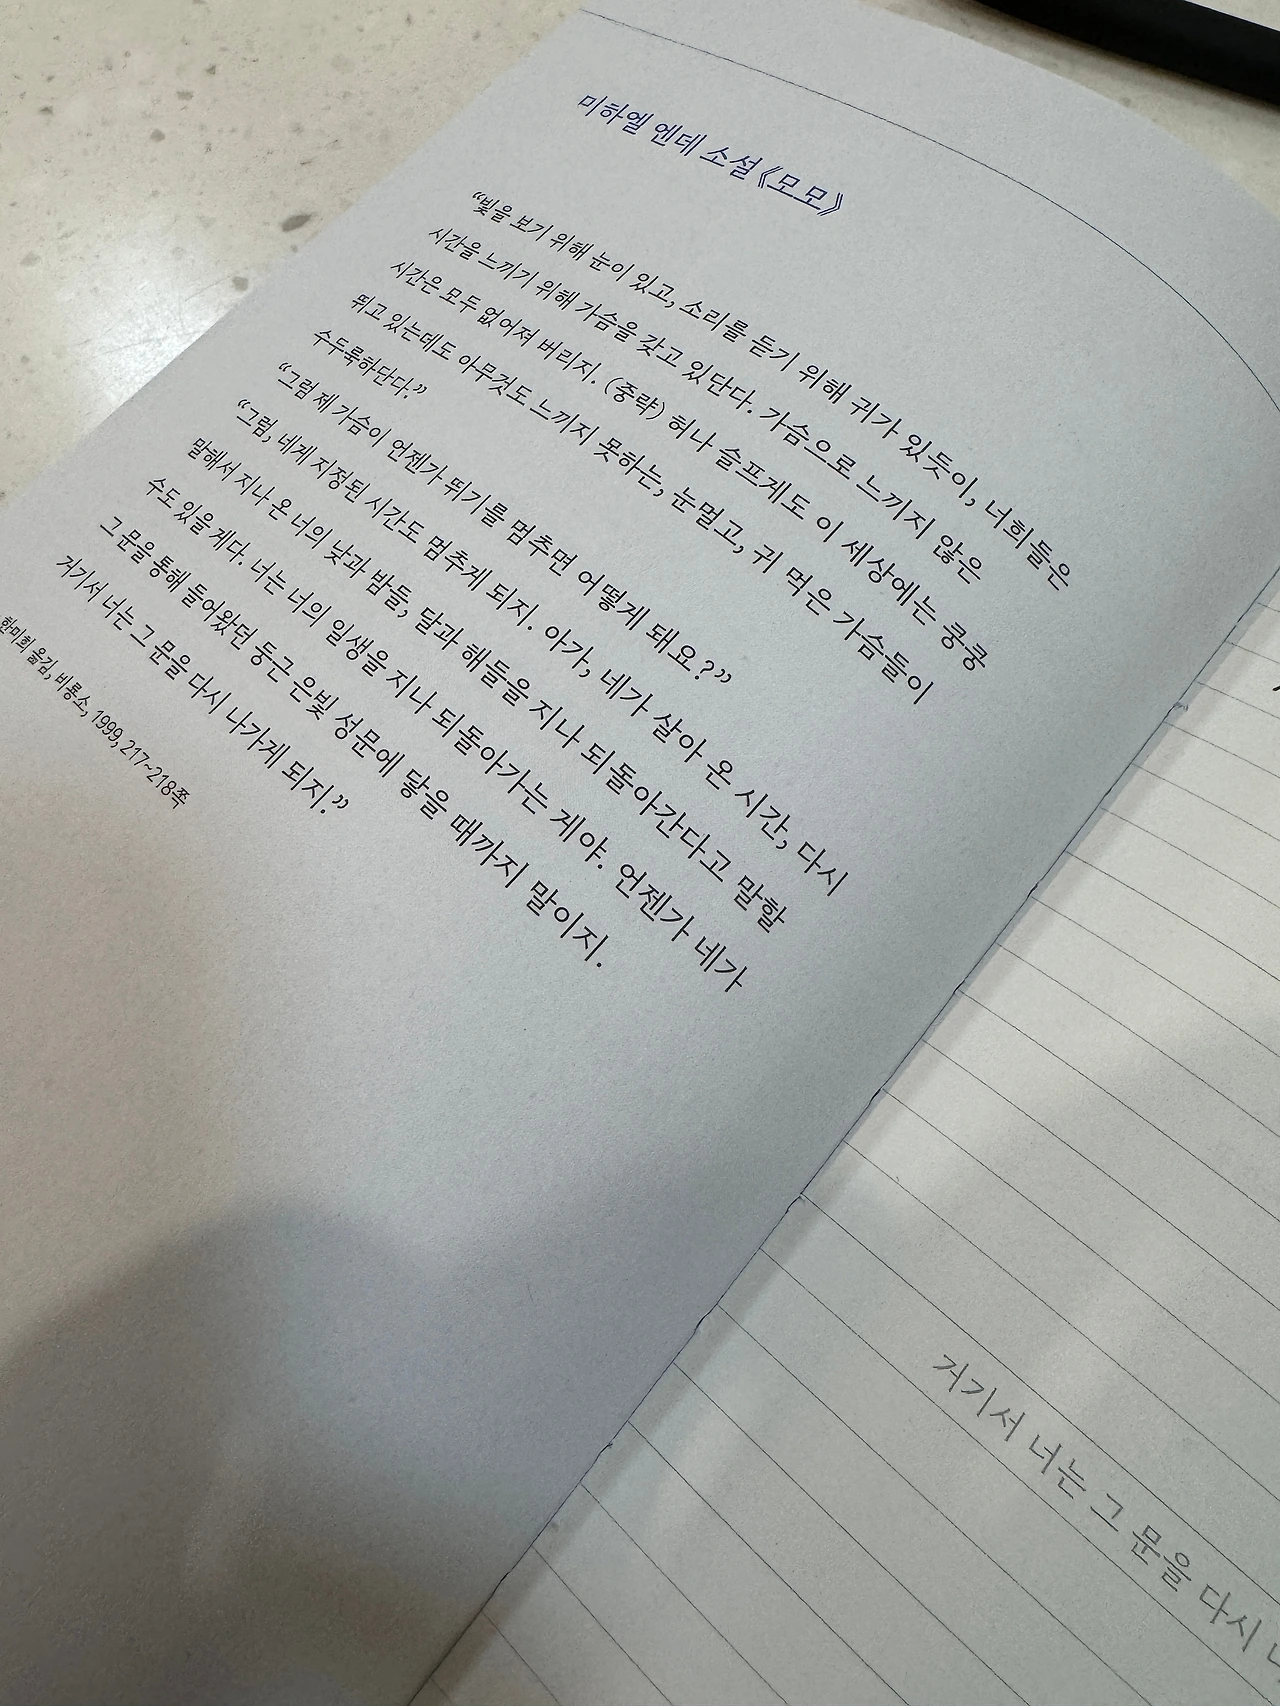 미하엘 엔데 소설 《모모》
“빛을 보기 위해 눈이 있고, 소리를 듣기 위해 귀가 있듯이, 너희들은
시간을 느끼기 위해 가슴을 갖고 있단다. 가슴으로 느끼지 않은
시간은 모두 없어져 버리지. (중략) 허나 슬프게도 이 세상에는 쿵쿵
뛰고 있는데도 아무것도 느끼지 못하는, 눈멀고, 귀 먹은 가슴들이
수두룩하단다.”
“그럼 제 가슴이 언젠가 뛰기를 멈추면 어떻게 돼요?”
“그럼, 네게 지정된 시간도 멈추게 되지. 아가, 네가 살아 온 시간, 다시
말해서 지나 온 너의 낮과 밤들, 달과 해들을 지나 되돌아간다고 말할
수도 있을 게다. 너는 너의 일생을 지나 되돌아가는 게야. 언젠가 네가
그 문을 통해 들어왔던 둥근 은빛 성문에 닿을 때까지 말이지.
거기서 너는 그 문을 다시 나가게 되지.”
한미희 옮김, 비룡소, 1999, 217~218쪽
거기서 너는 그 문을 다시